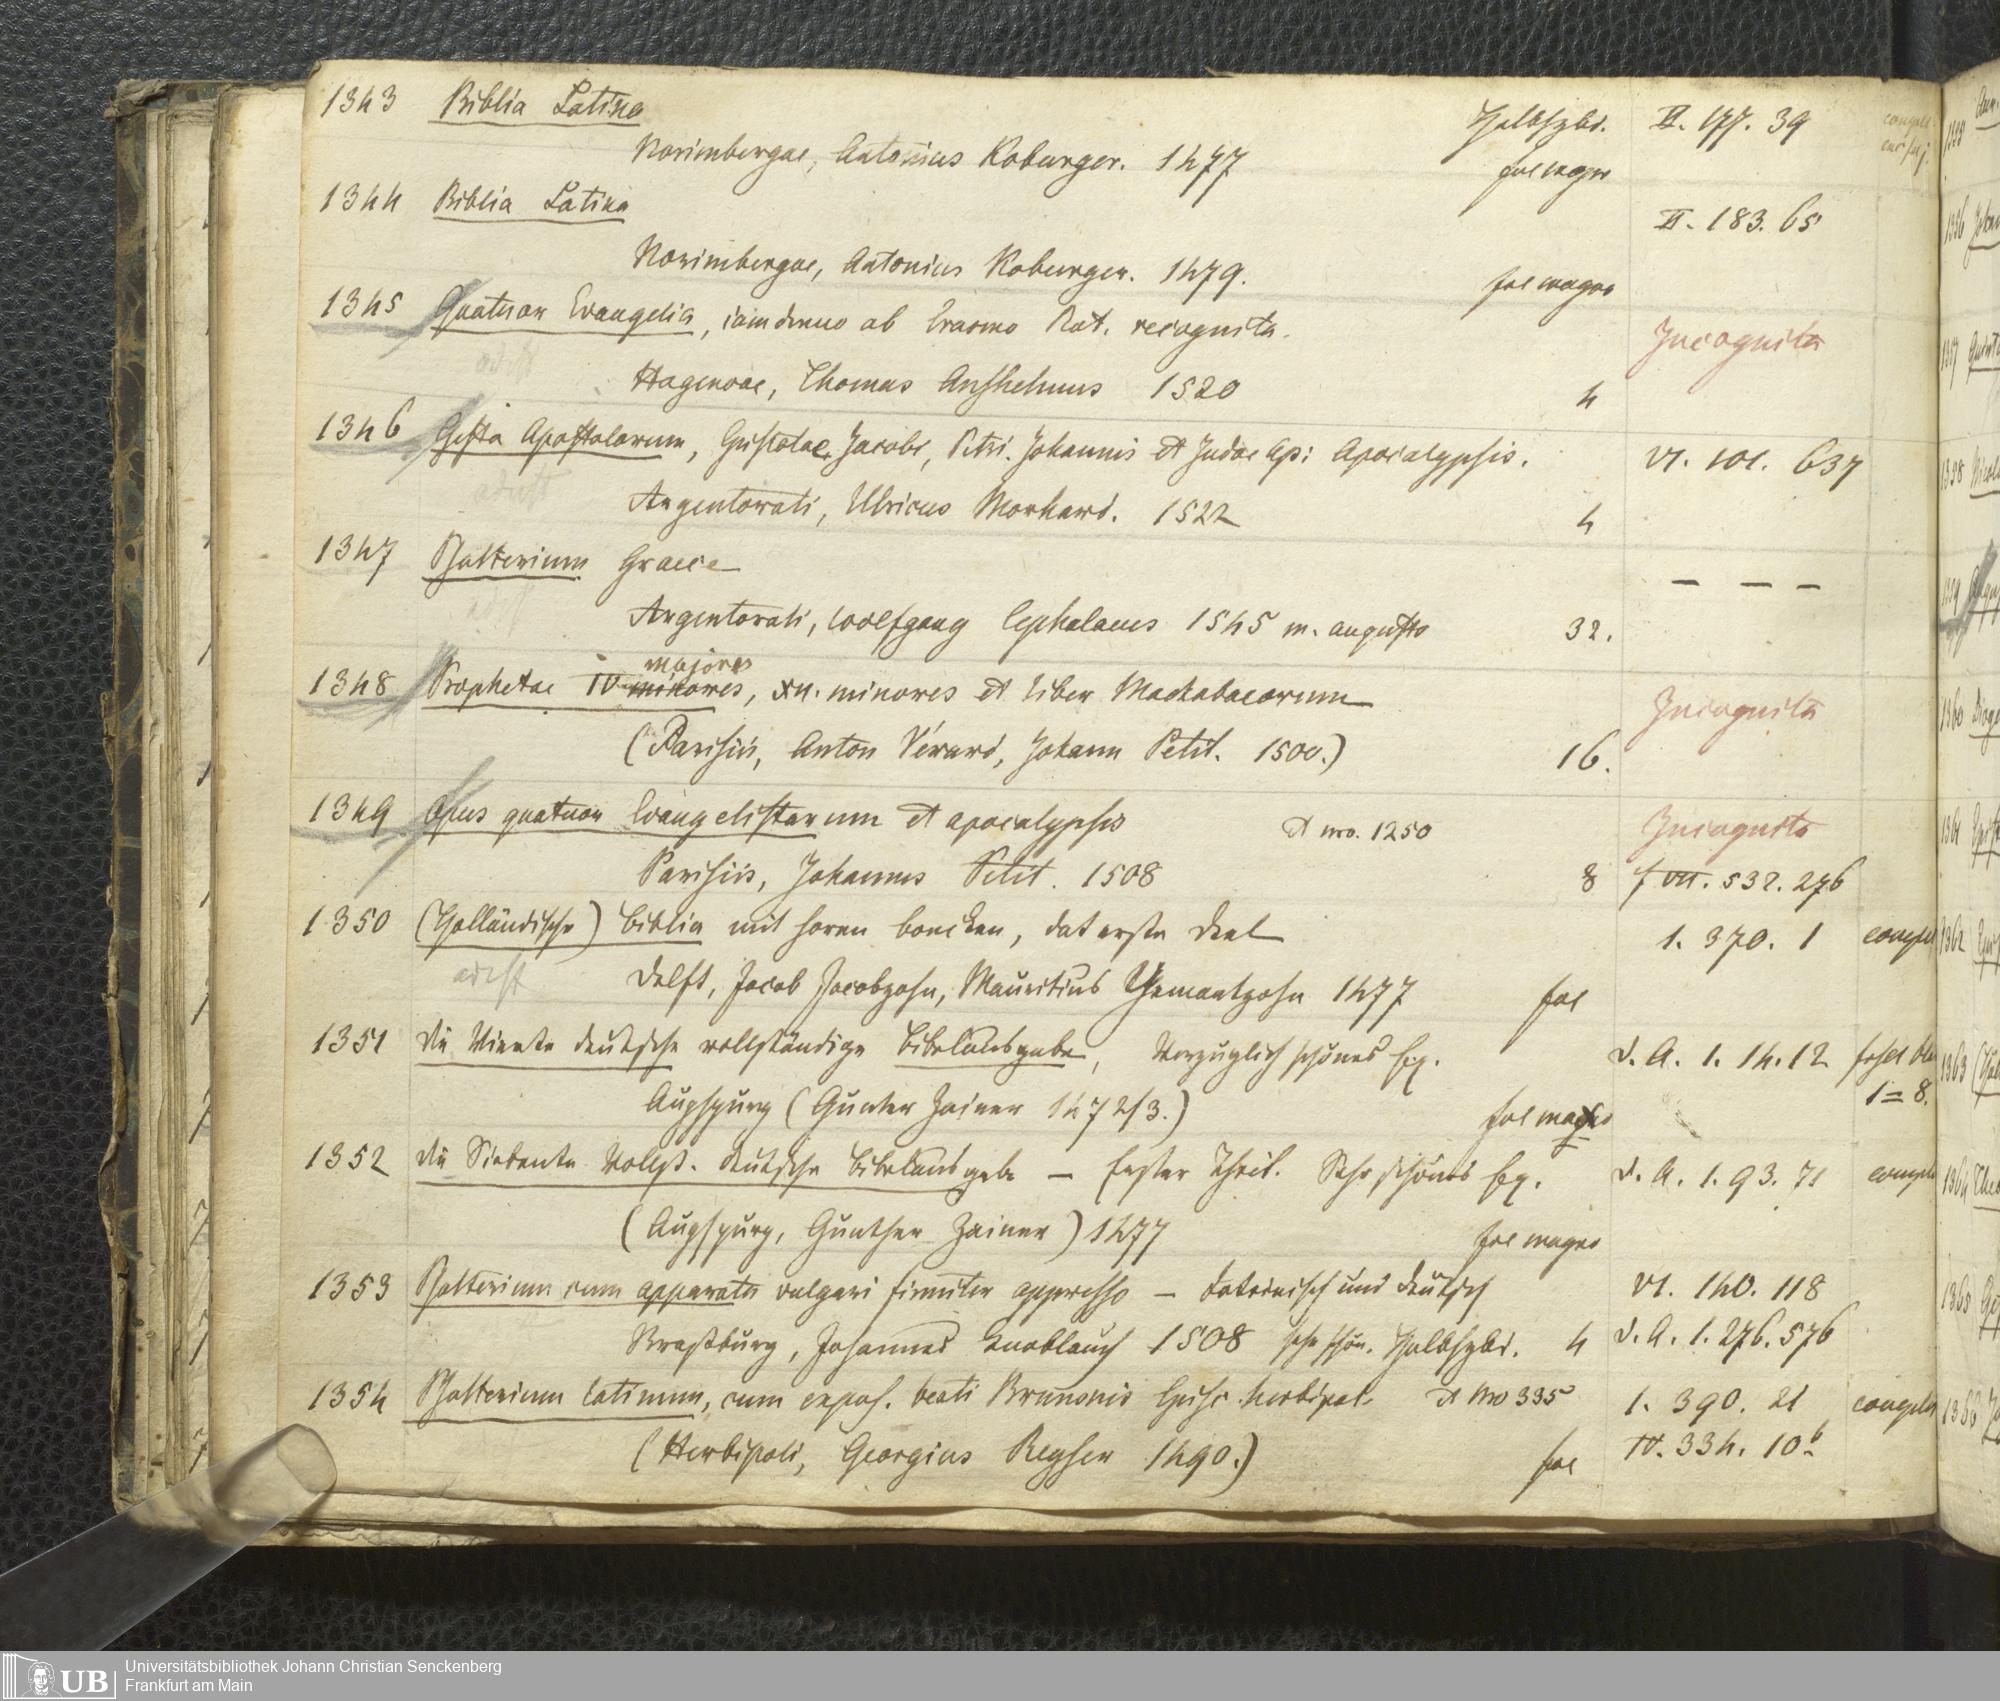 1343 Biblia Latina Halbfzbd. II. 177. 39
Norimbergae, Antonius Koburger. 1477 fol magno
1344 Biblia Latina II. 183. 65
Norimbergae, Antonius Koburger. 1479. fol magno
1345 Quatuor Evangelia, iam denuo ab Erasmo Rot. recognita. Incognita
adest
Hagenoae, Thomas Anshelmus 1520 4
1346 Gesta Apostolorum, Epistolae Jacobi, Petri. Johannis et Judae Ap: Apocalypsis. VI. 101. 637
adest
Argentorati, Ulricus Morhard. 1522 4
1347 Psalterium Graece — — —
adest
Argentorati, Wolfgang Cephalaeus 1545 m. angusto 32.
majores
1348 Prophetae IV minores, XII. minores et Liber Machabaeorum Incognita
(Parisiis, Anton Vérard, Johann Petit. 1500.) 16.
1349 Opus quatuor Evangelistarum et apocalypsis et nro. 1250 Incognita
Parisiis, Johannes Petit. 1508 8 f VII. 532. 276
1350 (Holländische) Biblia mit horen boecken, dat erste deel 1. 370. 1 complet
adest
Delft, Jacob Jacobzohn, Mauritius Yemantzohn 1477 fol
1351 Die Vierte deutsche vollständige Bibelausgabe, Vorzüglich schönes Ex. d. A. 1. 14. 12 fehlt
1=8.
Augspurg (Gunter Zainer 1472/3.) fol magno
1352 Die Siebente Vollst. deutsche Bibelausgabe — Erster Theil. Sehr schönes Ex. d. A. 1. 93. 71 complet
(Augspurg, Gunther Zainer) 1477 fol magno
1353 Psalterium cum apparatu vulgari firmiter appresso — Lateinisch und deutsch VI. 140. 118
Strassburg, Johannes Knoblauch 1508 sehr schön. Halbfzbd. 4 d. A. 1. 276. 576
1354 Psalterium latinum, cum expos. beati Brunonis Episc. herbipol. et nro 335 1. 390. 21 complet
(Herbipoli, Georgius Reyser 1490.) fol IV. 334. 10b
Universitätsbibliothek Johann Christian Senckenberg
UB Frankfurt am Main